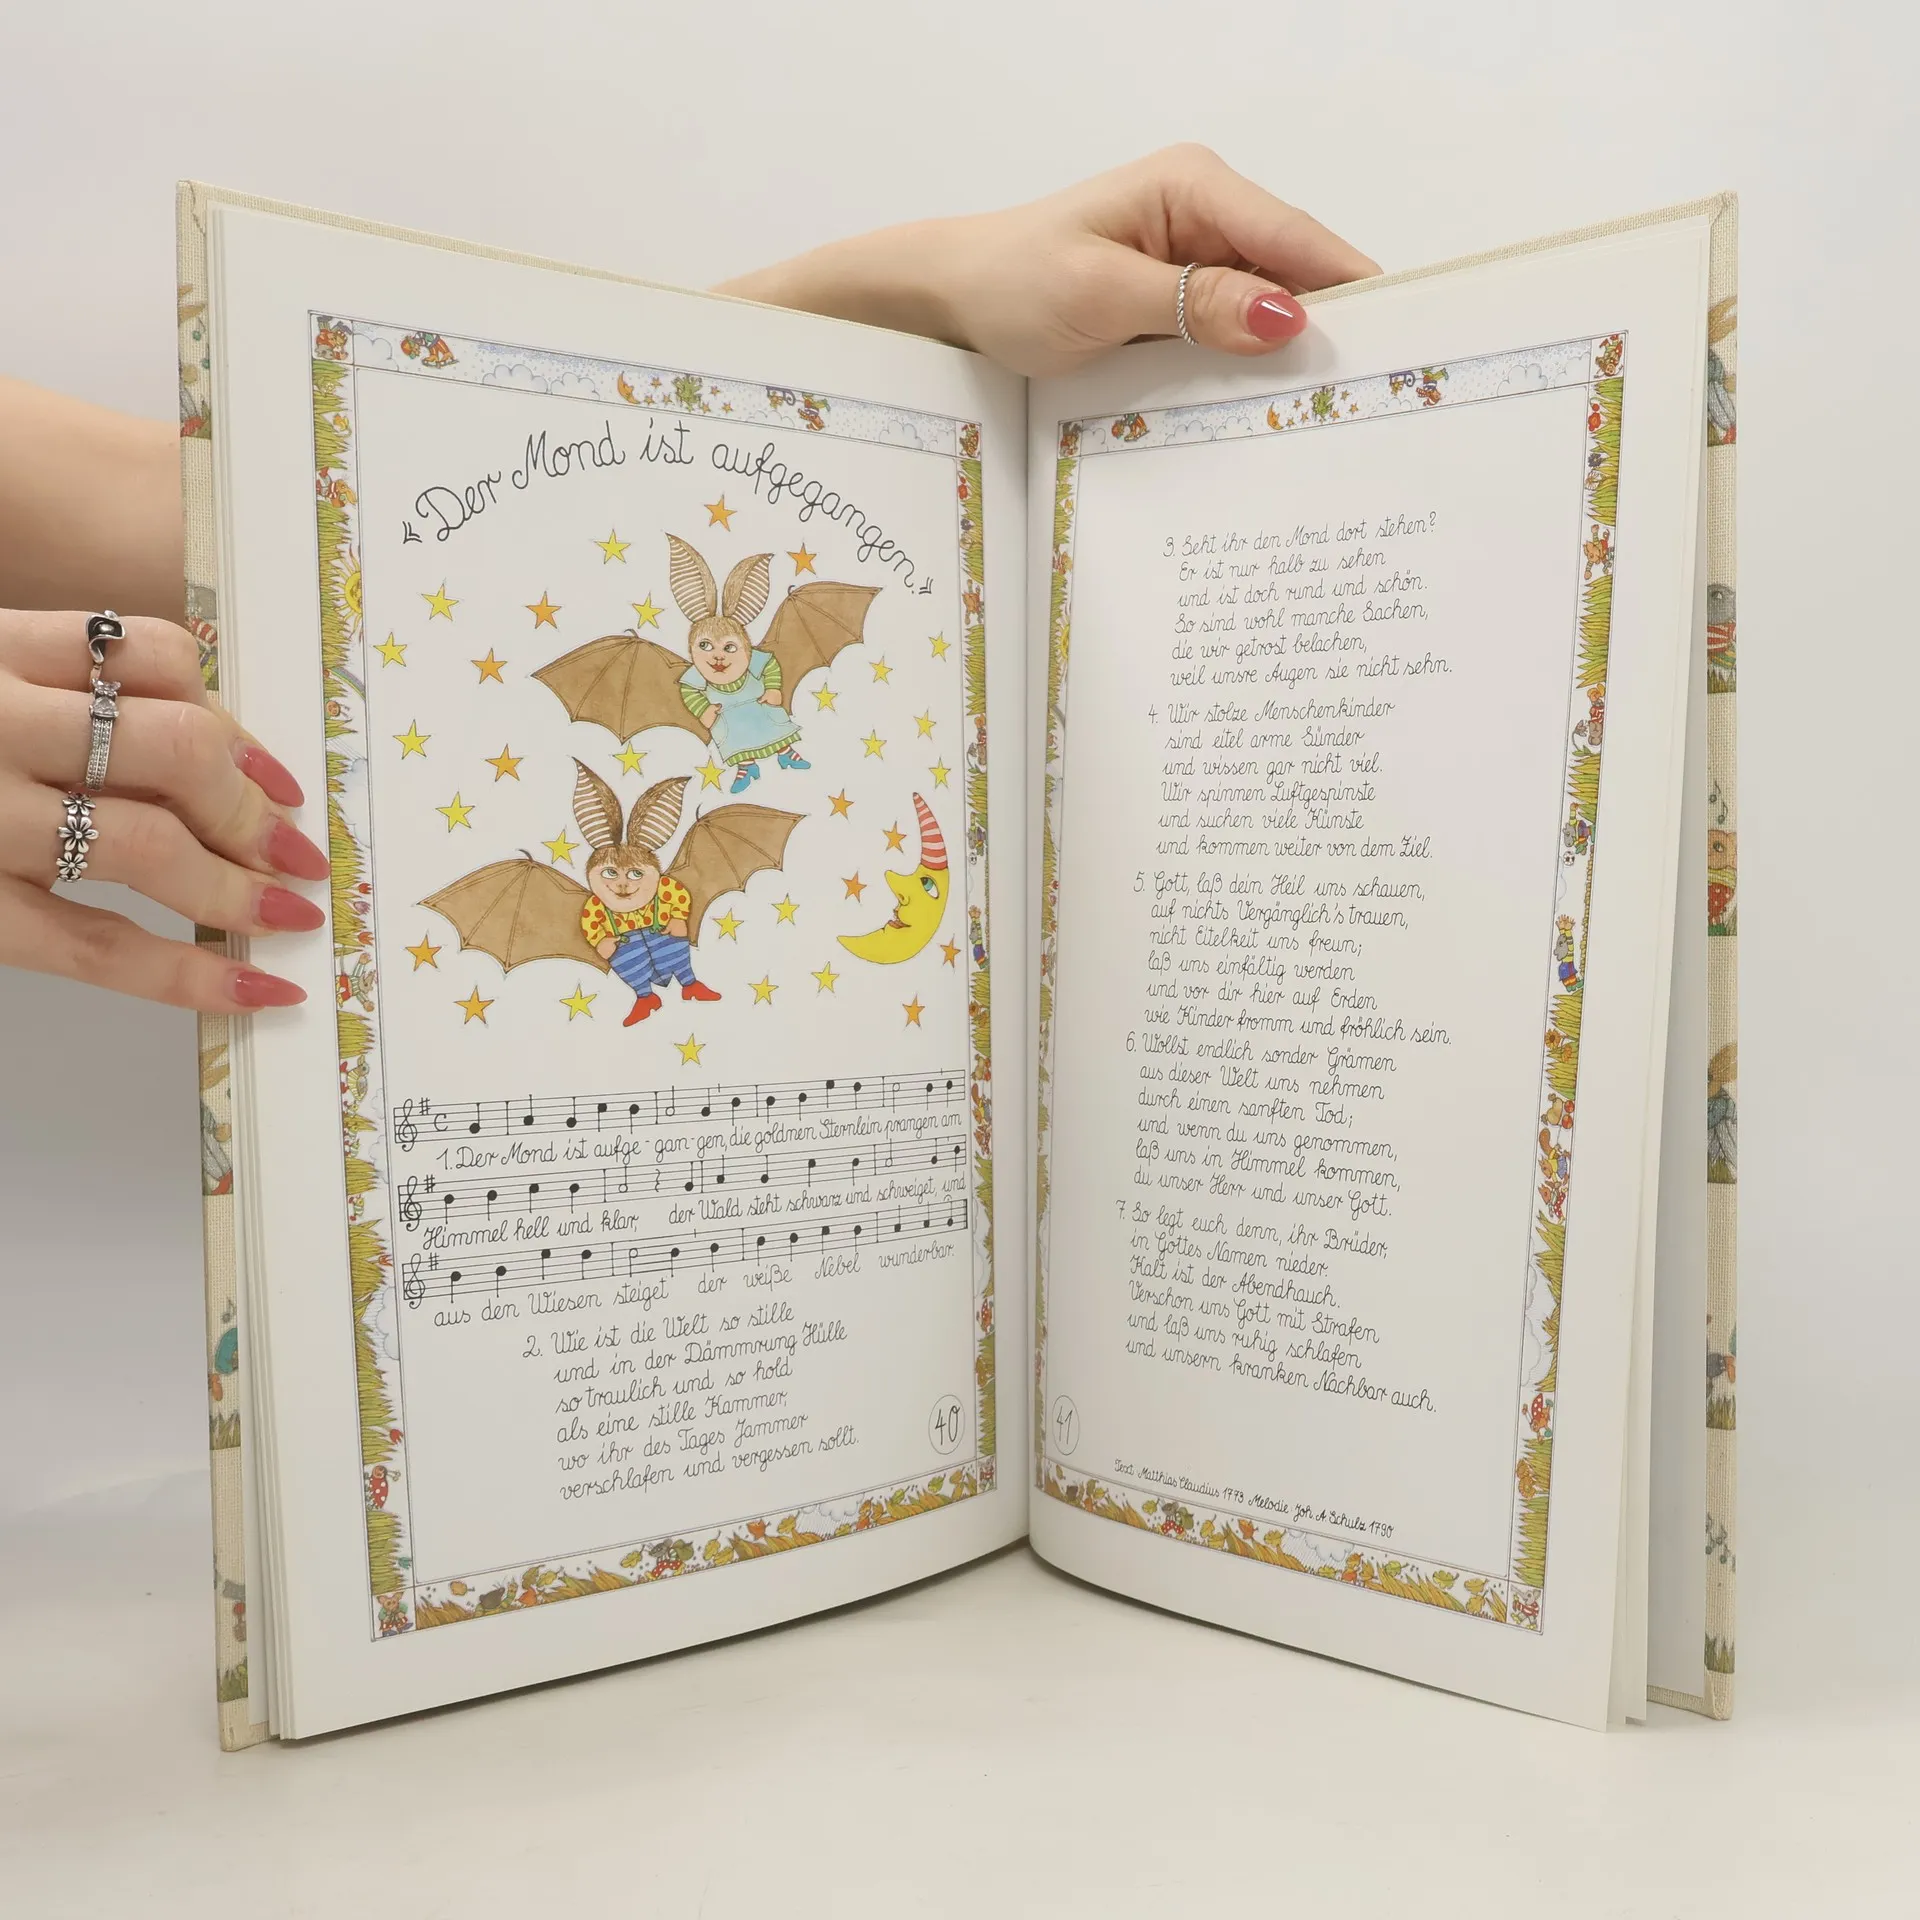 „Der Mond ist aufgegangen.“
1. Der Mond ist aufge-gan-gen, die goldnen Sternlein prangen am
Himmel hell und klar; der Wald steht schwarz und schweiget, und
aus den Wiesen steiget der weiße Nebel wunderbar.
2. Wie ist die Welt so stille
und in der Dämmrung Hülle
so traulich und so hold
als eine stille Kammer,
wo ihr des Tages Jammer
verschlafen und vergessen sollt.
40
3. Seht ihr den Mond dort stehen?
Er ist nur halb zu sehen
und ist doch rund und schön.
So sind wohl manche Sachen,
die wir getrost belachen,
weil unsre Augen sie nicht sehn.
4. Wir stolze Menschenkinder
sind eitel arme Sünder
und wissen gar nicht viel.
Wir spinnen Luftgespinste
und suchen viele Künste
und kommen weiter von dem Ziel.
5. Gott, laß dein Heil uns schauen,
auf nichts Vergänglich's trauen,
nicht Eitelkeit uns freun;
laß uns einfältig werden
und vor dir hier auf Erden
wie Kinder fromm und fröhlich sein.
6. Wollst endlich sonder Grämen
aus dieser Welt uns nehmen
durch einen sanften Tod;
und wenn du uns genommen,
laß uns in Himmel kommen,
du unser Herr und unser Gott.
7. So legt euch denn, ihr Brüder,
in Gottes Namen nieder.
Kalt ist der Abendhauch.
Verschon uns Gott mit Strafen
und laß uns ruhig schlafen
und unsern kranken Nachbar auch.
41
Text: Matthias Claudius 1773 Melodie: Joh. A. Schulz 1790